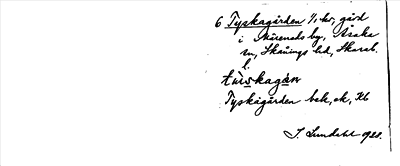 6 Tyskagården 1/1 hr, gård
i Mårends by, Åsaka
sn, Skånings hd, Skarab.
l.
tüskagån
Tyskagården bek, ek, Kb
I. Lundahl 1928.